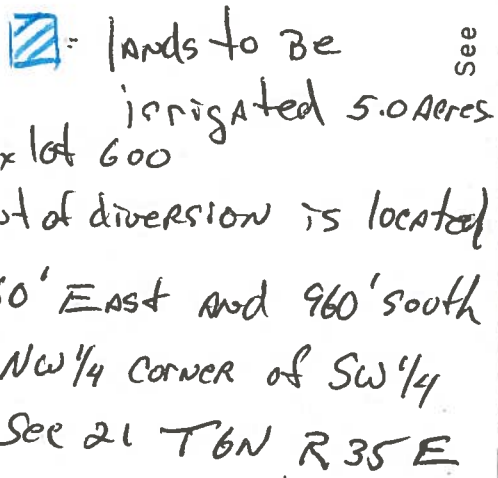 = lands to Be
See
irrigated 5.0 Acres
x lot 600
of diversion is located
0' East and 960' south
NW 1/4 corner of SW 1/4
Sec 21 T6N R35E